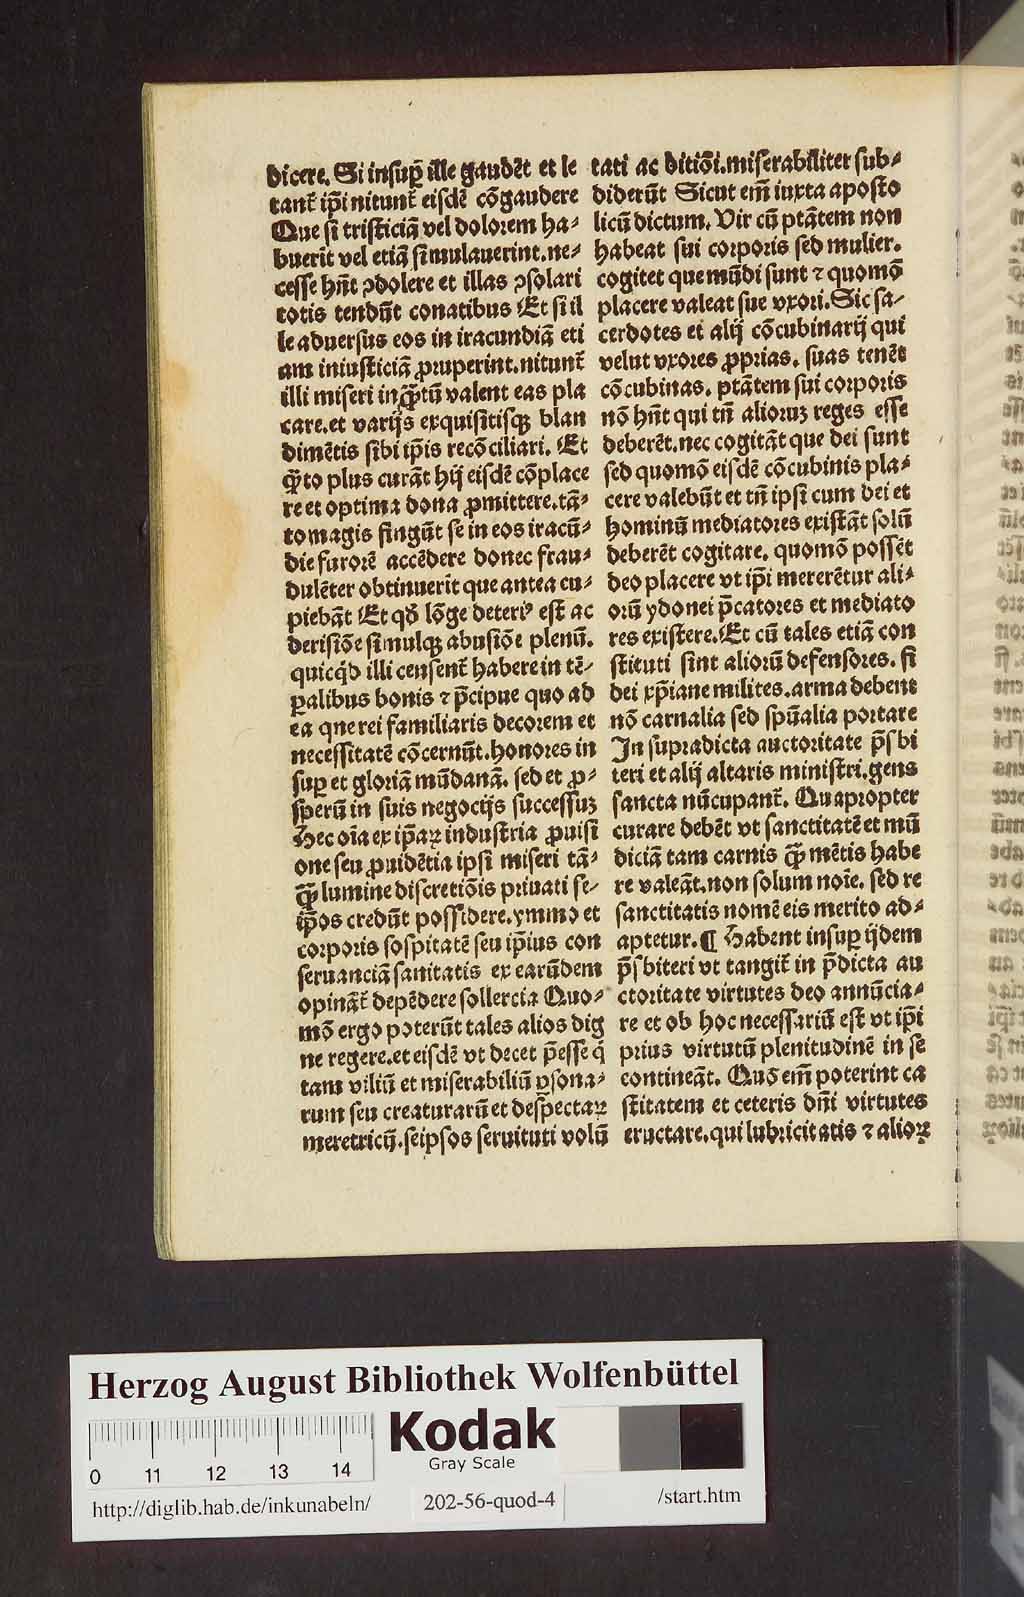 dicere. Si insuꝑ ille gaudēt et le
tant᷑ ip̄i nitunt᷑ eisdē cōgaudere
Que si tristiciā vel dolorem ha⸗
buerit vel etiā simulauerint. ne⸗
cesse hn̄t ꝯdolere et illas ꝯsolari
totis tendūt conatibus Et si il
le aduersus eos in iracundiā eti
am iniusticiā ꝓruperint. nitunt᷑
illi miseri inq̄ꝫtū valent eas pla
care. et varijs exquisitisqꝫ blan
dimētis sibi ip̄is recōciliari. Et
q̄ꝫto plus curāt hij eisdē cōplace
re et optima dona ꝓmittere. tā⸗
to magis fingūt se in eos iracū⸗
die furorē accēdere donec frau⸗
dulēter obtinuerit que antea cu⸗
piebāt Et qd̄ lōge deteriꝰ est ac
derisiōe simulqꝫ abusiōe plenū.
quicq̇d illi censent᷑ habere in tē⸗
ꝑalibus bonis ⁊ p̄cipue quo ad
ea qne rei familiaris decorem et
necessitatē cōcernūt. honores in
suꝑ et gloriā mūdanā. sed et ꝓ⸗
sperū in suis negocijs successuꝫ
Hec oīa ex ip̄aꝝ industria ꝓuisi
one seu ꝓuidētia ipsi miseri tā⸗
q̄ꝫ lumine discretiōis priuati se⸗
ip̄os credūt possidere. ymmo et
corporis sospitatē seu ip̄ius con
seruanciā sanitatis ex earūdem
opināt᷑ depēdere sollercia Quo⸗
mō ergo poterūt tales alios dig
ne regere. et eisdē vt decet p̄esse q̇
tam viliū et miserabiliū ꝑsona⸗
rum seu creaturarū et despectaꝝ
meretricū. seipsos seruituti volū
tati ac ditiōi. miserabiliter sub⸗
diderūt Sicut em̄ iuxta aposto
licū dictum. Vir cū ptātem non
habeat sui corporis sed mulier.
cogitet que mūdi sunt ⁊ quomō
placere valeat sue vxori. Sic sa⸗
cerdotes et alij cōcubinarij qui
velut vxores ꝓprias. suas tenēt
cōcubinas. ptātem sui corporis
nō hn̄t qui tn̄ alioruꝫ reges esse
deberēt. nec cogitāt que dei sunt
sed quomō eisdē cōcubinis pla⸗
cere valebūt et tn̄ ipsi cum dei et
hominū mediatores existāt solū
deberēt cogitare. quomō possēt
deo placere vt ip̄i mererētur ali⸗
orū ydonei p̄catores et mediato
res existere. Et cū tales etiā con
stituti sint aliorū defensores. si
dei xp̄iane milites. arma debent
nō carnalia sed spūalia portare
In supradicta auctoritate p̄sbi
teri et alij altaris ministri. gens
sancta nūcupant᷑. Quapropter
curare debēt vt sanctitatē et mū
diciā tam carnis q̄ꝫ mētis habe
re valeāt. non solum noīe. sed re
sanctitatis nomē eis merito ad⸗
aptetur. ¶ Habent insuꝑ ijdem
p̄sbiteri vt tangit᷑ in p̄dicta au
ctoritate virtutes deo annūcia⸗
re et ob hoc necessariū est vt ip̄i
prius virtutū plenitudinē in se
contineāt. Quō em̄ poterint ca
stitatem et ceteris dn̄i virtutes
eructare. qui lubricitatis ⁊ alioꝝ
Herzog August Bibliothek Wolfenbüttel
0 11 12 13 14
Kodak
Gray Scale
http://diglib.hab.de/inkunabeln/
202-56-quod-4
/start.htm